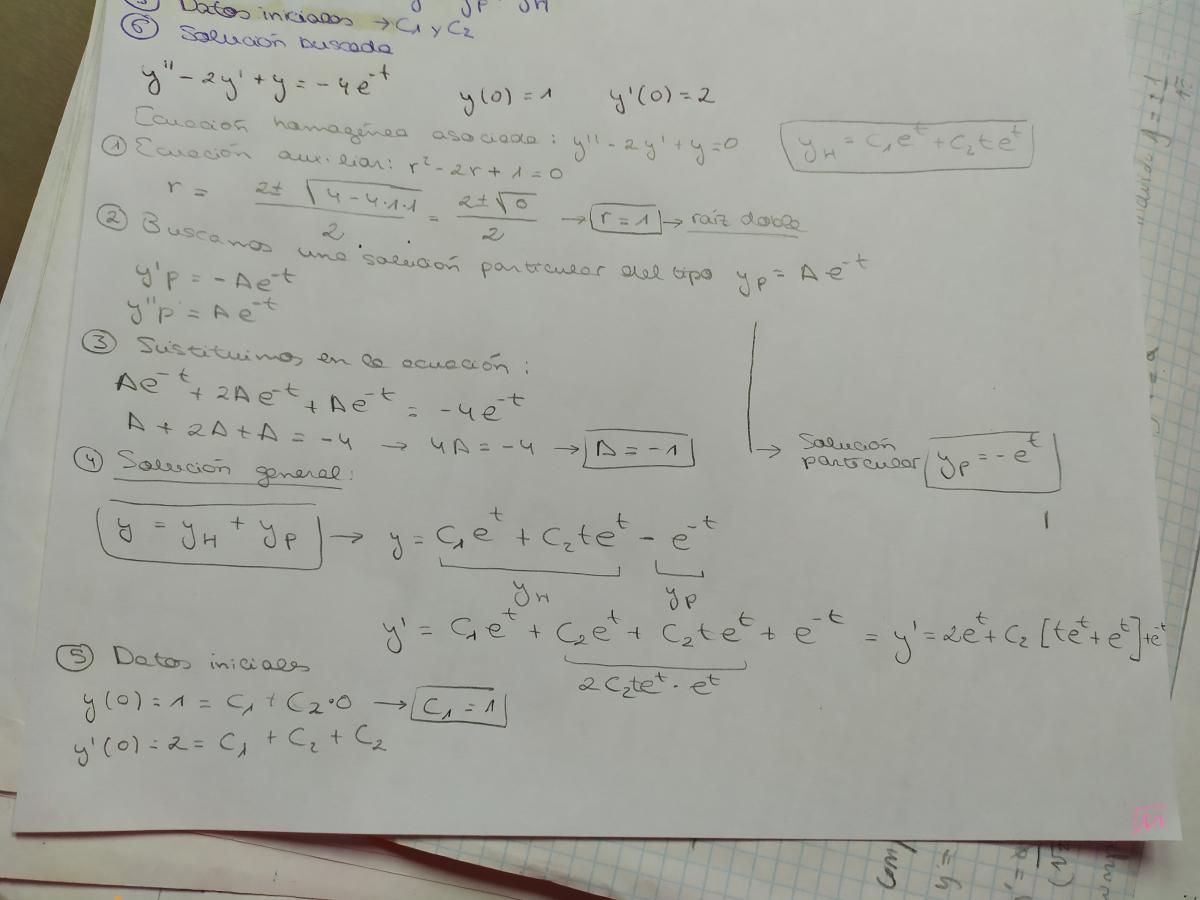 ⑤ Datos iniciales → C₁ y C₂
⑥ Solución buscada
y'' - 2y' + y = -4e^-t    y(0) = 1    y'(0) = 2
Ecuación homogénea asociada: y'' - 2y' + y = 0    y_H = C₁e^t + C₂te^t
① Ecuación auxiliar: r² - 2r + 1 = 0
r = (2 ± √(4 - 4·1·1))/2 = (2 ± √0)/2 → r = 1 → raíz doble
② Buscamos una solución particular del tipo y_p = Ae^-t
y'p = -Ae^-t
y''p = Ae^-t
③ Sustituimos en la ecuación:
Ae^-t + 2Ae^-t + Ae^-t = -4e^-t
A + 2A + A = -4 → 4A = -4 → A = -1
→ Solución particular y_p = -e^t
④ Solución general:
y = y_H + y_p → y = C₁e^t + C₂te^t - e^-t
y_H    y_p
y' = C₁e^t + C₂e^t + C₂te^t + e^-t = y' = 2e^t + C₂[te^t + e^t] + e^t
2C₂te^t · e^t
⑤ Datos iniciales
y(0) = 1 = C₁ + C₂·0 → C₁ = 1
y'(0) = 2 = C₁ + C₂ + C₂